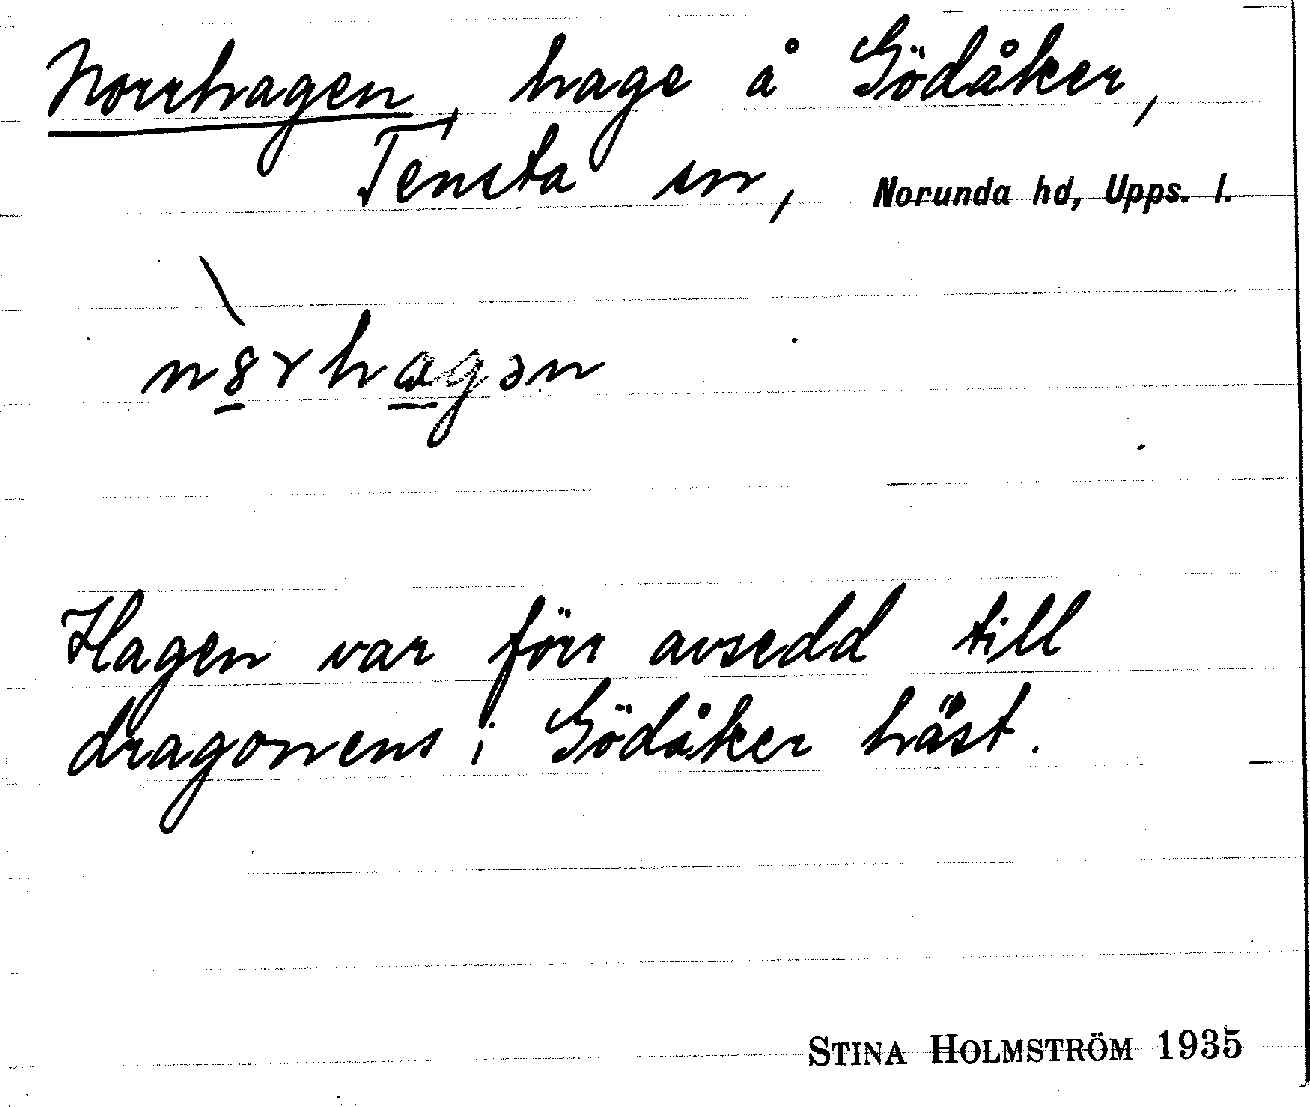 Norrhagen, hage å Gödåker,
Tensta sn, Norunda hd, Upps. l.
n8rhagən
Hagen var förr avsedd till
dragonens i Gödåker häst.
STINA HOLMSTRÖM 1935